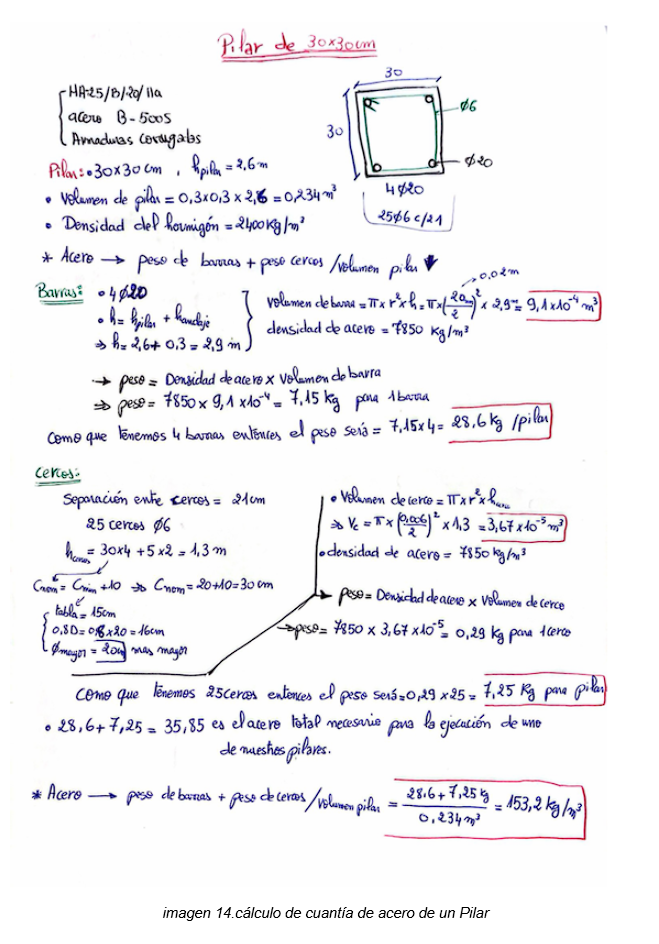 Pilar de 30x30cm
HA-25/B/20/IIa
acero B-500S
Armaduras Corrugadas
30
30
Ø6
Ø20
4Ø20
25Ø6 c/21
Pilar: • 30x30 cm , hpilar = 2,6 m
• Volumen de pilar = 0,3x0,3 x 2,6 = 0,234 m³
• Densidad del hormigón = 2400 Kg/m³
* Acero → peso de barras + peso cercos / volumen pilar
Barras:
• 4Ø20
• h = hpilar + handaje
⇒ h = 2,6 + 0,3 = 2,9 m
0,02m
volumen de barra = π x r² x h = π x (20mm/2)² x 2,9m = 9,1 x 10⁻⁴ m³
densidad de acero = 7850 Kg/m³
→ peso = Densidad de acero x Volumen de barra
⇒ peso = 7850 x 9,1 x 10⁻⁴ = 7,15 Kg para 1 barra
Como que tenemos 4 barras entonces el peso será = 7,15 x 4 = 28,6 Kg /pilar
Cercos:
Separación entre cercos = 21cm
25 cercos Ø6
= 30x4 + 5x2 = 1,3 m
Cnom = Cmin +10 ⇒ Cnom = 20+10 = 30 cm
tabla = 15cm
0,8D = 0,8 x 20 = 16cm
Ømayor = 20 mas mayor
• Volumen de cerco = π x r² x
⇒ Vc = π x (0,006/2)² x 1,3 = 3,67 x 10⁻⁵ m³
• densidad de acero = 7850 Kg/m³
→ peso = Densidad de acero x Volumen de cerco
→ peso = 7850 x 3,67 x 10⁻⁵ = 0,29 Kg para 1 cerco
Como que tenemos 25 cercos entonces el peso será = 0,29 x 25 = 7,25 Kg para pilar
• 28,6 + 7,25 = 35,85 es el acero total necesario para la ejecución de uno
de nuestros pilares.
* Acero → peso de barras + peso de cercos / volumen pilar = 28,6 + 7,25 kg / 0,234 m³ = 153,2 kg/m³
imagen 14.cálculo de cuantía de acero de un Pilar